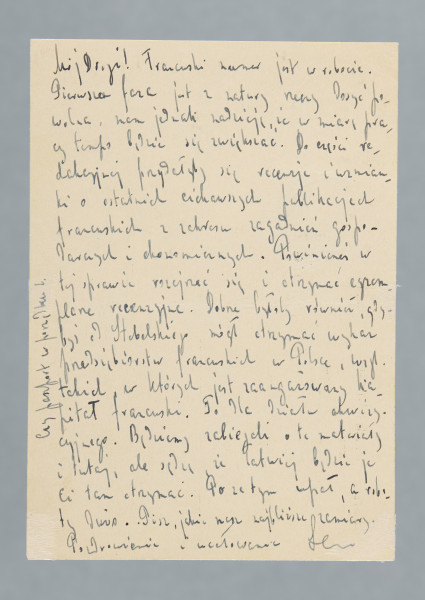 Mój Drogi! Francuski numer jest w robocie.
Pierwsza faza jest z natury rzeczy dosyć po-
wolna, mam jednak nadzieję, że w miarę pra-
cy tempo będzie się zwiększać. Do części re-
dakcyjnej przydałyby się recenzje i wzmian-
ki o ostatnich ciekawszych publikacjach
francuskich z zakresu zagadnień gospo-
darczych i ekonomicznych. Powinieneś w
tej sprawie rozejrzeć się i otrzymać egzem-
plarze recenzyjne. Dobrze byłoby również, gdy-
byś od Stebelskiego mógł otrzymać wykaz
przedsiębiorstw francuskich w Polsce, wzgl.
takich, w których jest zaangażowany ka-
pitał francuski. To dla działu akwizy-
cyjnego. Będziemy zabiegali o te materiały
i tutaj, ale sądzę, że łatwiej będzie je
Ci tam otrzymać. Poza tym upał, a robo-
ty dużo. Pisz, jakie masz najbliższe zamiary.
Pozdrowienia i ucałowania
Czy paszport w porządku?